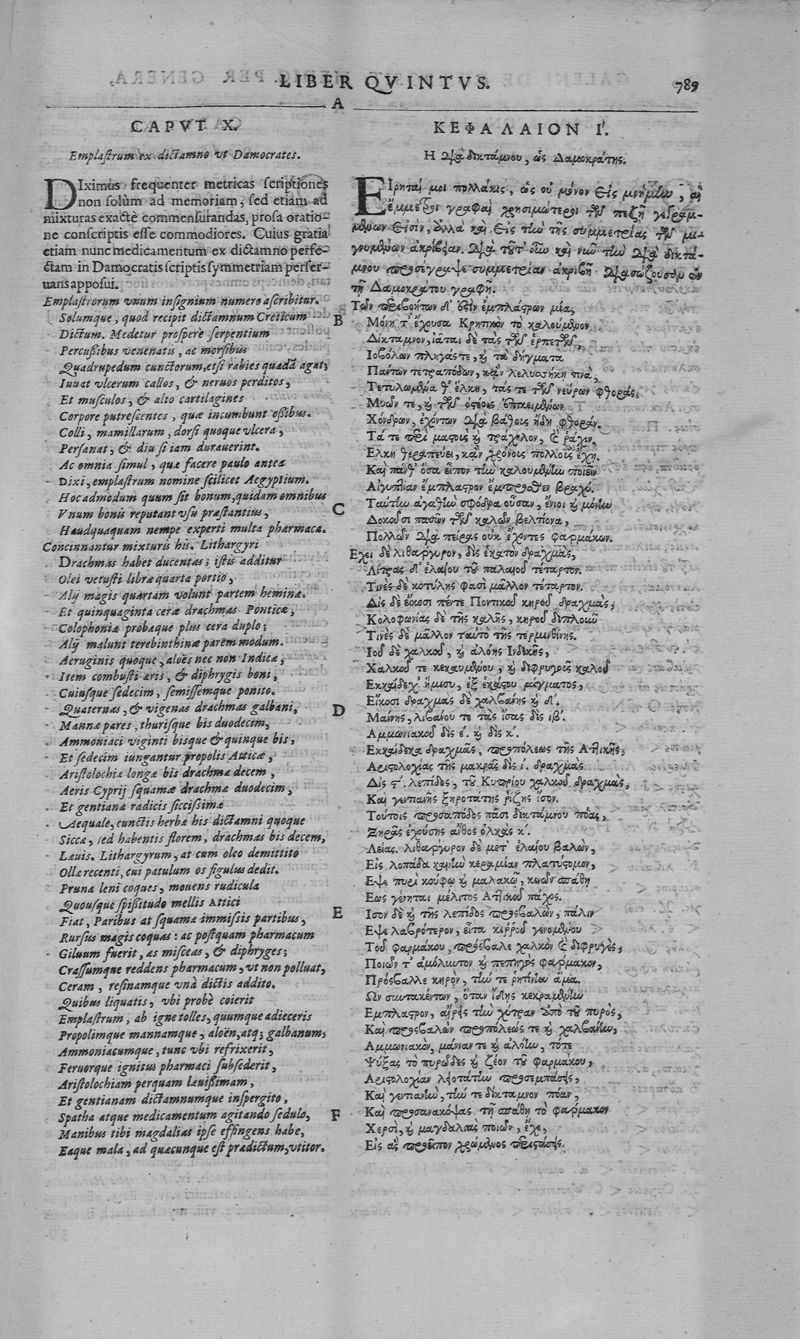 LIBER QVINTVS. 789
A
CAPVT X.
Emplastrum ex dictamno vt Damocrates.
DIximus frequenter metricas scriptiones
non solùm ad memoriam, sed etiam ad
mixturas exactè commensurandas, prosa oratio-
ne conscriptis esse commodiores. Cuius gratia
etiam nunc medicamentum ex dictamno perfe-
ctam in Damocratis scriptis symmetriam perser-
uans apposui.
Emplastrorum vnum insignium numero ascribitur.
Solumque, quod recipit dictamnum Creticum
Dictum. Medetur prospere serpentium
Percussibus venenatis, ac morsibus
Quadrupedum cunctorum, etsi rabies quadã agat,
Iuuat vlcerum callos, & neruos perditos,
Et musculos, & alto cartilagines
Corpore putrescentes, quæ incumbunt ossibus.
Colli, mamillarum, dorsi quoque vlcera,
Persanat, & diu si iam durauerint.
Ac omnia simul, quæ facere paulo antea
Dixi, emplastrum nomine scilicet Aegyptium.
Hoc admodum quum sit bonum, quidam omnibus
Vnum bonis reputant vsu præstantius,
Haudquaquam nempe experti multa pharmaca.
Concinnantur mixturis his. Lithargyri
Drachmas habet ducentas; istis additur
Olei vetusti libræ quarta portio,
Alij magis quartam volunt partem heminæ.
Et quinquaginta ceræ drachmas Ponticæ,
Colophoniæ probæque plus cera duplo;
Alij malunt terebinthinæ parem modum.
Aeruginis quoque, aloës nec non Indicæ,
Item combusti æris, & diphrygis boni,
Cuiusque sedecim, semissemque ponito.
Quaternas, & vigenas drachmas galbani,
Mannæ pares, thurisque bis duodecim,
Ammoniaci viginti bisque & quinque bis,
Et sedecim iungantur propolis Atticæ,
Aristolochiæ longæ bis drachmæ decem,
Aeris Cyprij squamæ drachmæ duodecim,
Et gentianæ radicis siccissimæ
Aequale, cunctis herbæ his dictamni quoque
Siccæ, sed habentis florem, drachmas bis decem,
Læuis. Lithargyrum, at cum oleo demittito
Ollæ recenti, cui patulum os figulus dedit.
Pruna leni coques, mouens rudicula
Quousque spissitudo mellis Attici
Fiat, Paribus at squamæ immissis partibus,
Rursus magis coquas: ac postquam pharmacum
Giluum fuerit, æs misceas, & diphryges;
Crassumque reddens pharmacum, vt non polluat,
Ceram, resinamque vnà dictis addito.
Quibus liquatis, vbi probè coierit
Emplastrum, ab igne tolles, quumque adieceris
Propolimque mannamque, aloën, atq; galbanum,
Ammoniacumque, tunc vbi refrixerit,
Feruorque ignitus pharmaci subsederit,
Aristolochiam perquam leuissimam,
Et gentianam dictamnumque inspergito,
Spatha atque medicamentum agitando sedulo,
Manibus tibi magdalias ipse effingens habe,
Eaque mala, ad quæcunque est prædictum, vtitor.
B
C
D
E
F
ΚΕΦΑΛΑΙΟΝ Ι'.
Η διὰ δικτάμνου, ὡς Δαμοκράτης.
Εἴρηταί μοι πολλάκις, ὡς οὐ μόνον εἰς μνήμην, αἱ
ἔμμετροι γραφαὶ χρησιμώτεραι τῶν πεζῇ γεγραμ-
μένων εἰσὶν, ἀλλὰ καὶ εἰς τὴν τῆς συμμετρίας τῶν μι-
γνυμένων ἀκρίβειαν. διὰ τοῦτ' οὖν καὶ νῦν τὴν διὰ δικτά-
μνου προσέγραψα συμμετρίαν ἀκριβῆ διασώζουσαν ἐν
τῇ Δαμοκράτου γραφῇ.
Μόνη τ' ἔχουσα Κρητικὸν τὸ καλούμενον
Δίκταμνον, ἰᾶται δὲ τὰς τῶν ἑρπετῶν,
Ἰοβόλων πληγάς τε, καὶ τὰ δήγματα
Πάντων τετραπόδων, κἂν λελυσσήκῃ τινὰ,
Τετυλωμένα θ' ἕλκη, τάς τε τῶν νεύρων φθορὰς,
Μυῶν τε, καὶ τῶν ὀστέοις ἐπικειμένων
Χόνδρων, ἐχόντων διὰ βάθους ἤδη φθοράν.
Τά τε περὶ μαστοὺς καὶ τράχηλον, καὶ ῥάχιν
Ἕλκη θεραπεύει, κἂν χρόνοις πολλοῖς ἔχῃ.
Καὶ πάνθ' ὅσα εἶπον τὴν καλουμένην ποιεῖν
Αἰγυπτίαν ἔμπλαστρον ἔμπροσθεν βραχύ.
Ταύτην ἀγαθὴν σφόδρα οὖσαν, ἔνιοι καὶ μόνην
Δοκοῦσι πασῶν τῶν καλῶν βελτίονα,
Πολλῶν διὰ πείρας οὐκ ἔχοντες φαρμάκων.
Ἔχει δὲ λιθάργυρον, δὶς ἑκατὸν δραχμὰς,
Τινὲς δὲ κοτύλης φασὶ μᾶλλον τέταρτον.
Δὶς δὲ εἴκοσι πέντε Ποντικοῦ κηροῦ δραχμὰς,
Κολοφωνίας δὲ τῆς καλῆς, κηροῦ διπλοῦν
Τινὲς δὲ μᾶλλον ταὐτὸ τῆς τερμινθίνης.
Ἰοῦ δὲ χαλκοῦ, καὶ ἀλόης Ἰνδικῆς,
Χαλκοῦ τε κεκαυμένου, καὶ διφρυγοῦς καλοῦ
Ἑκκαίδεχ' ἥμισυ, ἐξ ἑκάστου μίγματος,
Εἴκοσι δραχμὰς δὲ χαλβάνης καὶ δ'.
Μάννης, λιβάνου τε τὰς ἴσας δὶς ιβ'.
Ἀμμωνιακοῦ δὶς ε'. καὶ δὶς κ'.
Ἑκκαίδεκα δραχμὰς, προπόλεως τῆς Ἀττικῆς,
Ἀριστολοχίας τῆς μακρᾶς δὶς ι'. δραχμὰς
Δὶς ϛ'. λεπίδος, τοῦ Κυπρίου χαλκοῦ δραχμὰς,
Καὶ γεντιανῆς ξηροτάτης ῥίζης ἴσον.
Τούτοις προσαπόδος πᾶσι δικτάμνου πόας,
Ξηρᾶς ἐχούσης ἄνθος ὁλκὰς κ'.
Λείας. λιθάργυρον δὲ μετ' ἐλαίου βαλὼν,
Εἰς λοπάδα καινὴν κεραμίαν πλατύστομον,
Ἕψε πυρὶ κούφῳ καὶ μαλακῷ, κινῶν σπάθῃ
Ἕως γένηται μέλιτος Ἀττικοῦ πάχος.
Ἴσον δὲ καὶ τῆς λεπίδος προσβαλὼν, πάλιν
Ἕψε λαβρότερον, εἶτα κιρροῦ γενομένου
Τοῦ φαρμάκου, πρόσβαλε χαλκὸν καὶ διφρυγὲς,
Ποιῶν τ' ἀμόλυντον καὶ πεπηγὸς φάρμακον,
Πρόσβαλλε κηρὸν, τήν τε ῥητίνην ἅμα.
Ὧν συντακέντων, ὅταν ἴδῃς κεκραμένην
Ἔμπλαστρον, αἴρῃς τὴν χύτραν ἀπὸ τοῦ πυρὸς,
Καὶ προσβαλὼν προπόλεώς τε καὶ χαλβάνην,
Ἀμμωνιακὸν, μάνναν τε καὶ ἀλόην, τότε
Ψύξας τὸ πυρῶδες καὶ ζέον τοῦ φαρμάκου,
Ἀριστολοχίαν λειοτάτην προσεμπάσῃς,
Καὶ γεντιανὴν, τήν τε δίκταμνον πόαν,
Καὶ προσανακόψας τῇ σπάθῃ τὸ φάρμακον
Χερσὶ, καὶ μαγδαλίας ποιῶν, ἔχε,